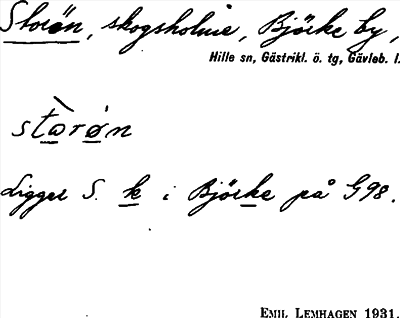 Storön, skogsholme, Björke by,
Hille sn, Gästrikl. ö. tg, Gävleb. l.
stòrøn
Ligger S. k i Björke på G98.
EMIL LEMHAGEN 1931.